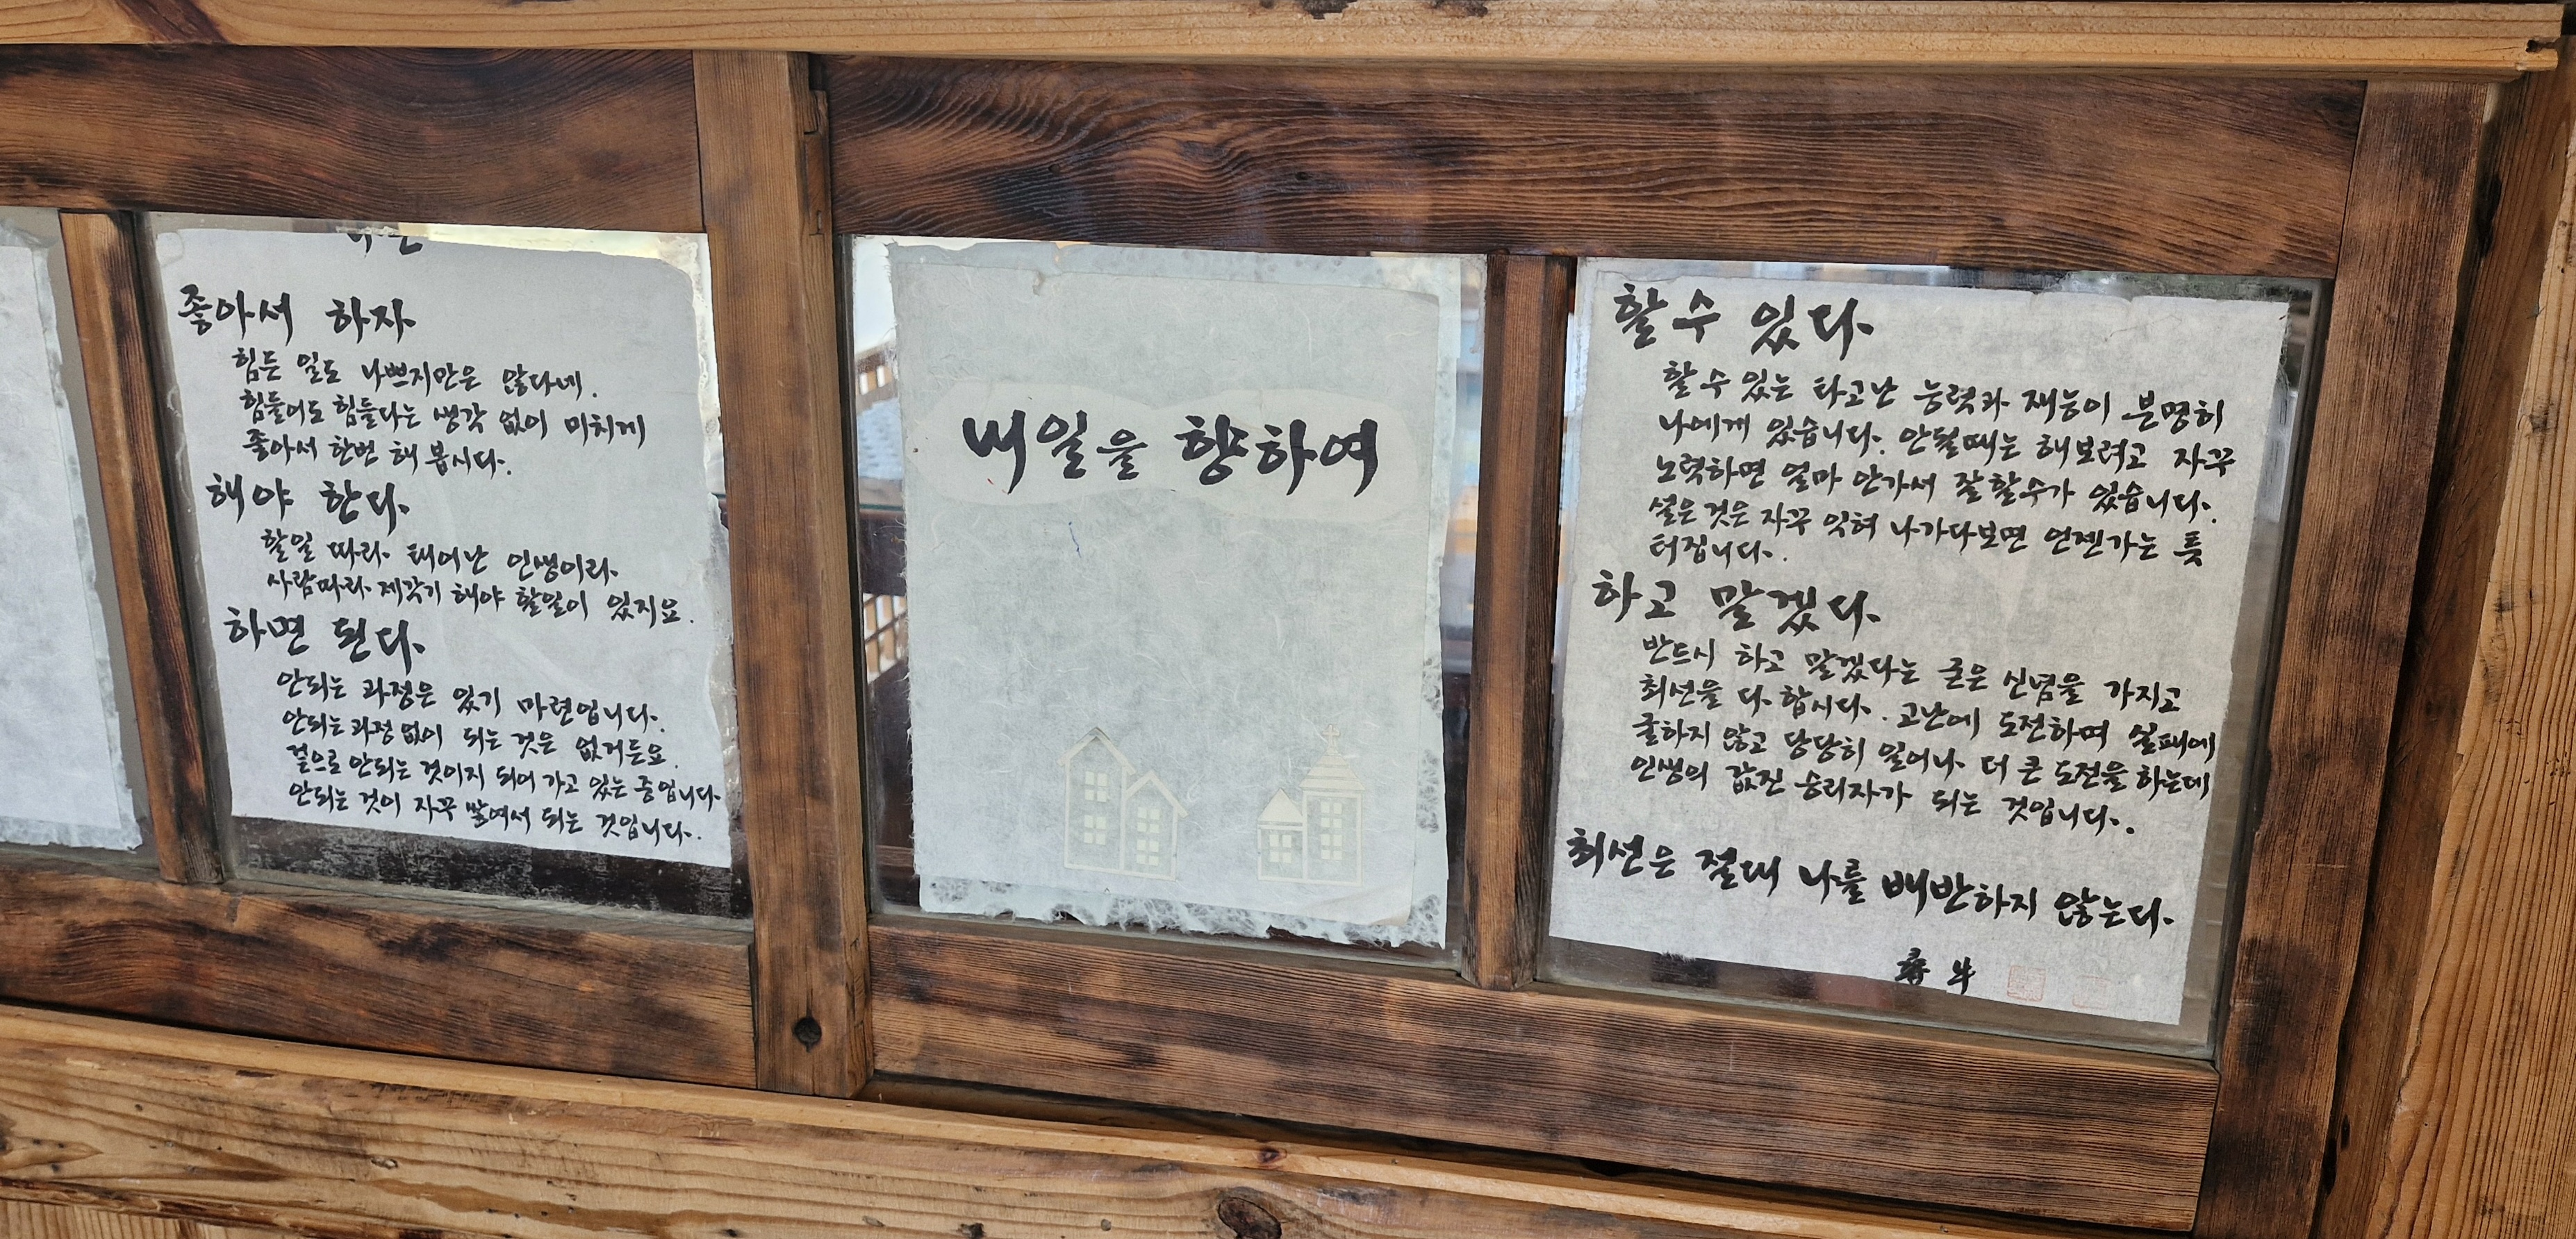 좋아서 하자
힘든 일도 나쁘지만은 않다네.
힘들어도 힘들다는 생각 없이 미치게
좋아서 한번 해 봅시다.
해야 한다.
할일 따라 태어난 인생이라
사람따라 제각기 해야 할일이 있지요.
하면 된다.
안되는 과정은 있기 마련입니다.
안되는 과정 없이 되는 것은 없거든요.
겉으로 안되는 것이지 되어 가고 있는 중입니다.
안되는 것이 자꾸 쌓여서 되는 것입니다.
내일을 향하여
할 수 있다.
할 수 있는 타고난 능력과 재능이 분명히
나에게 있습니다. 안될때는 해보려고 자꾸
노력하면 얼마 안가서 잘할수가 있습니다.
설은 것은 자꾸 익혀 나가다보면 언젠가는 툭
터집니다.
하고 말겠다.
반드시 하고 말겠다는 굳은 신념을 가지고
최선을 다 합시다. 고난에 도전하며 실패에
굴하지 않고 당당히 일어나 더 큰 도전을 하는데
인생의 값진 승리자가 되는 것입니다.
최선은 절대 나를 배반하지 않는다.